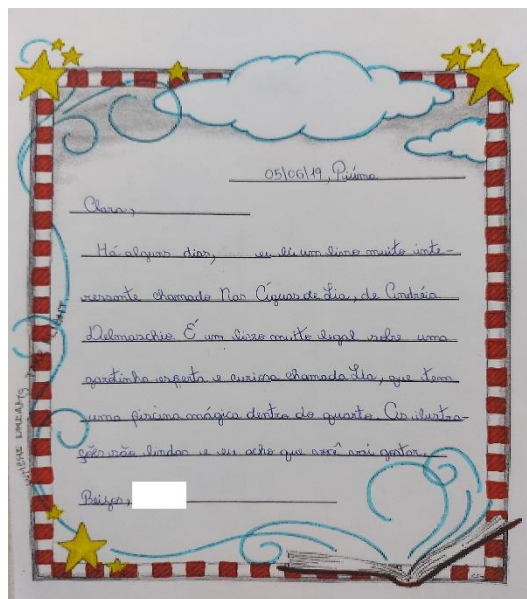 05/06/19, Piúma
Clara,
Há alguns dias, eu li um livro muito inte-
ressante chamado Nas Águas de Lia, de Andréia
Delmaschio. É um livro muito legal sobre uma
garotinha esperta e curiosa chamada Lia, que tem
uma piscina mágica dentro do quarto. As ilustra-
ções são lindas e eu acho que você vai gostar.
Beijos,
WHERE DREAMS TAKE